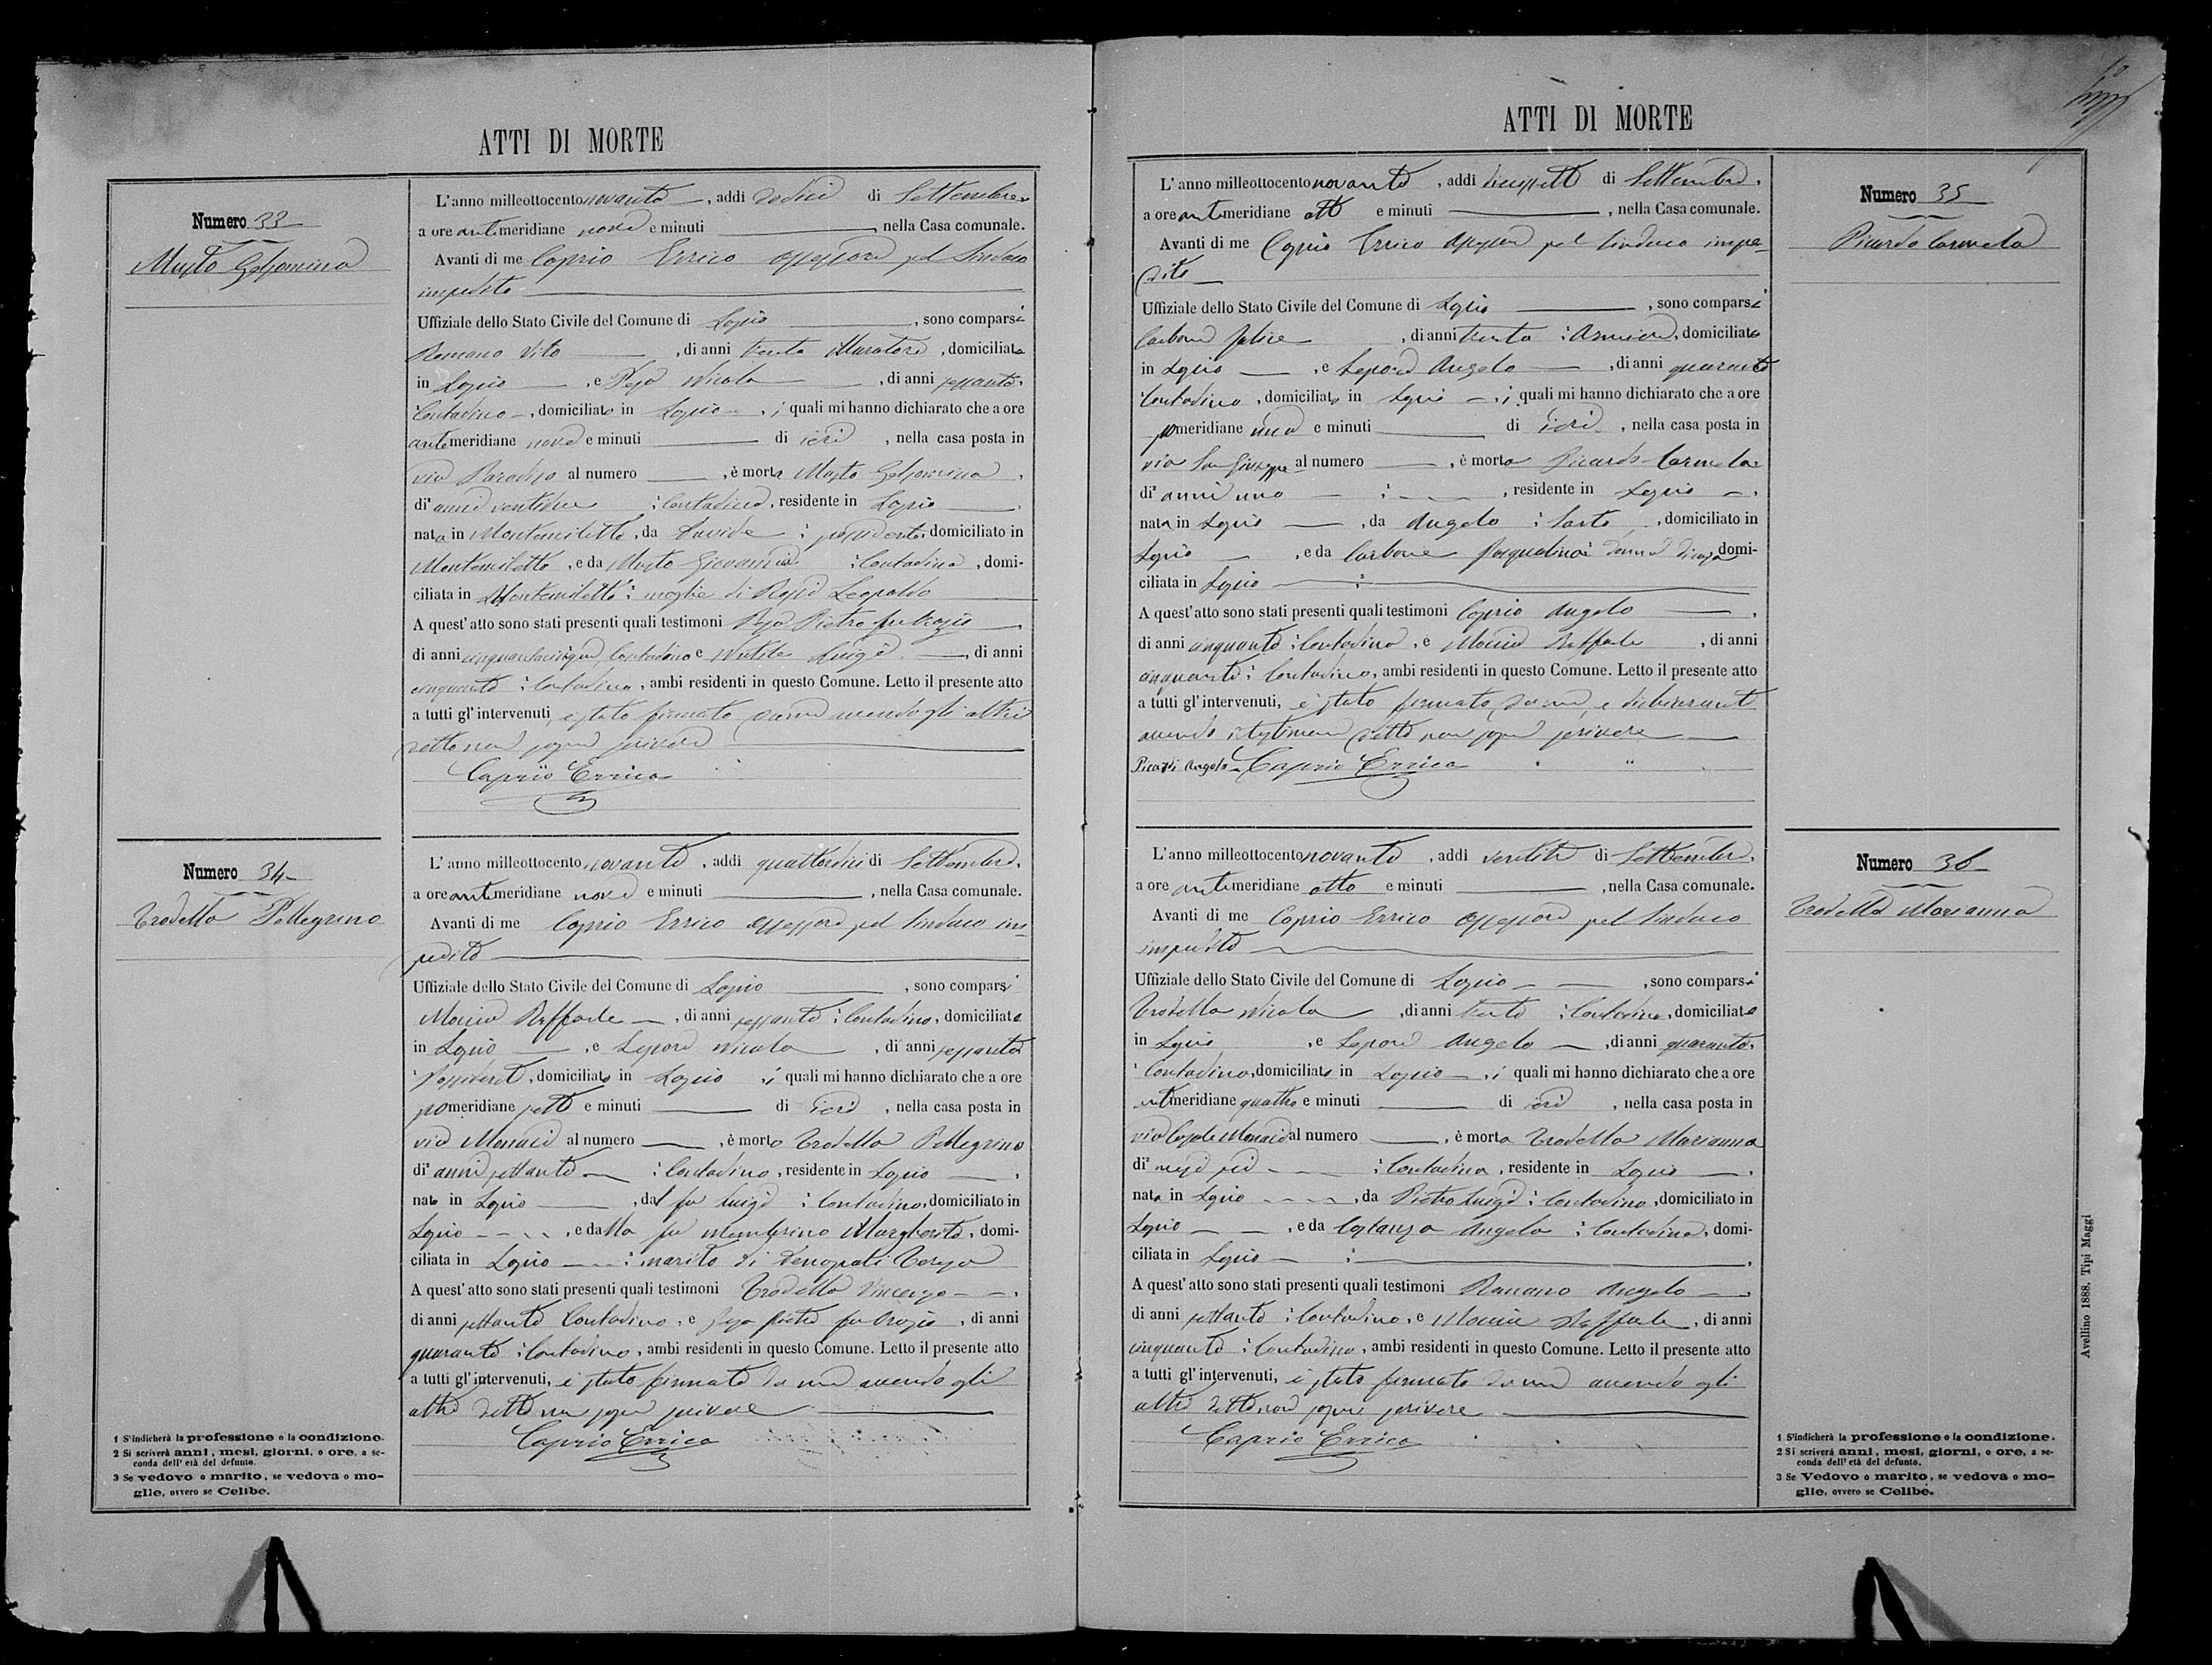 ATTI DI MORTE
Numero 33
Musto Gelsomina
L' anno milleottocentonovanta, addì dodici di Settembre
a ore antimeridiane nove e minuti, nella Casa comunale.
Avanti di me Caprio Errico Assessore pel Sindaco
impedito
Uffiziale dello Stato Civile del Comune di Lapio, sono comparsi
Romano Vito, di anni trenta Muratore, domiciliato
in Lapio, e Pepa Nicola, di anni sessanta,
Contadino, domiciliato in Lapio, i quali mi hanno dichiarato che a ore
antimeridiane nove e minuti di ieri, nella casa posta in
via Paradiso al numero, è morta Musto Gelsomina,
di anni ventidue Contadina, residente in Lapio,
nata in Montemiletto, da Davide possidente, domiciliato in
Montemiletto, e da Musto Giovannina Contadina, domi-
ciliata in Montemiletto moglie di Leopoldo
A quest' atto sono stati presenti quali testimoni Pepa Pietro fu Orazio
di anni cinquantacinque, Contadino e Luigi, di anni
cinquanta Contadino, ambi residenti in questo Comune. Letto il presente atto
a tutti gl' intervenuti, è stato firmato da me avendo gli altri
detto non sapere scrivere
Caprio Errico
Numero 34
Trodella Pellegrino
L' anno milleottocentonovanta, addì quattordici di Settembre,
a ore antimeridiane nove e minuti, nella Casa comunale.
Avanti di me Caprio Errico assessore pel Sindaco im-
pedito
Uffiziale dello Stato Civile del Comune di Lapio, sono comparsi
Raffaele, di anni sessanta Contadino, domiciliato
in Lapio, e Lepore Nicola, di anni sessanta
Possidente, domiciliato in Lapio, i quali mi hanno dichiarato che a ore
pomeridiane sette e minuti di ieri, nella casa posta in
via Monaci al numero, è morto Trodella Pellegrino
di anni settanta Contadino, residente in Lapio,
nato in Lapio, dal fu Luigi Contadino, domiciliato in
Lapio, e dalla fu Margherita, domi-
ciliata in Lapio marito di Teresa
A quest' atto sono stati presenti quali testimoni Trodella Vincenzo,
di anni settanta Contadino, e Pepa Pietro fu Orazio, di anni
quaranta Contadino, ambi residenti in questo Comune. Letto il presente atto
a tutti gl' intervenuti, è stato firmato da me avendo gli
altri detto non sapere scrivere
Caprio Errico
1 S'indicherà la professione o la condizione.
2 Si scriverà anni, mesi, giorni, o ore, a se-
conda dell' età del defunto.
3 Se vedovo o marito, se vedova o mo-
glie, ovvero se Celibe.
ATTI DI MORTE
Numero 35
Picardo Carmela
L' anno milleottocentonovanta, addì diecisette di Settembre,
a ore antimeridiane otto e minuti, nella Casa comunale.
Avanti di me Caprio Errico Assessore pel Sindaco impe-
dito
Uffiziale dello Stato Civile del Comune di Lapio, sono comparsi
Carbone Felice, di anni trenta, domiciliato
in Lapio, e Lepore Angelo, di anni quaranta
Contadino, domiciliato in Lapio, i quali mi hanno dichiarato che a ore
pomeridiane una e minuti di ieri, nella casa posta in
via San Giuseppe al numero, è morta Picardo Carmela
di anni uno, residente in Lapio,
nata in Lapio, da Angelo Sarto, domiciliato in
Lapio, e da Carbone Pasqualina donna di casa, domi-
ciliata in Lapio
A quest' atto sono stati presenti quali testimoni Caprio Angelo,
di anni cinquanta Contadino, e Raffaele, di anni
cinquanta Contadino, ambi residenti in questo Comune. Letto il presente atto
a tutti gl' intervenuti, è stato firmato da me, e dichiarante
avendo i testimoni detto non sapere scrivere
Picardi Angelo Caprio Errico
Numero 36
Trodella Marianna
L' anno milleottocentonovanta, addì ventitre di Settembre,
a ore antimeridiane otto e minuti, nella Casa comunale.
Avanti di me Caprio Errico assessore pel Sindaco
impedito
Uffiziale dello Stato Civile del Comune di Lapio, sono comparsi
Trodella Nicola, di anni trenta Contadino, domiciliato
in Lapio, e Lepore Angelo, di anni quaranta,
Contadino, domiciliato in Lapio, i quali mi hanno dichiarato che a ore
antimeridiane quattro e minuti di ieri, nella casa posta in
via Monaci al numero, è morta Trodella Marianna
di mesi sei Contadina, residente in Lapio,
nata in Lapio, da Pietro Luigi Contadino, domiciliato in
Lapio, e da Costanza Angela Contadina, domi-
ciliata in Lapio
A quest' atto sono stati presenti quali testimoni Romano Angelo,
di anni settanta Contadino, e Raffaele, di anni
cinquanta Contadino, ambi residenti in questo Comune. Letto il presente atto
a tutti gl' intervenuti, è stato firmato da me avendo gli
altri detto non sapere scrivere
Caprio Errico
1 S'indicherà la professione o la condizione.
2 Si scriverà anni, mesi, giorni, o ore, a se-
conda dell' età del defunto.
3 Se Vedovo o marito, se vedova o mo-
glie, ovvero se Celibe.
Avellino 1888, Tipi Maggi